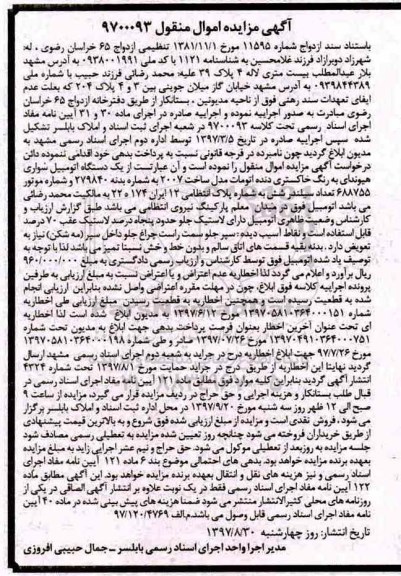 آگهی مزایده اموال منقول ۹۷۰۰۰۹۳
باستناد سند ازدواج شماره ۱۱۵۹۵ مورخ ۱۳۸۱/۱۱/۱ تنظیمی ازدواج ۶۵ خراسان رضوی ، له:
شهرزاد دوبرازاد فرزند غلامحسین به شناسنامه ۱۱۲۱ با کد ملی ۰۹۳۸۰۰۱۹۹۱ به آدرس مشهد
بلار عبدالمطلب بیست متری لاله ۴ پلاک ۳۹ علیه: محمد رضائی فرزند حبیب با شماره ملی
۰۹۳۹۸۴۴۳۸۹ به آدرس مشهد خیابان گاز میلان جوینی بین ۳ و ۴ پلاک ۲۰۴ که بعلت عدم
ایفای تعهدات سند رهنی فوق از ناحیه مدیونین ، بستانکار از طریق دفترخانه ازدواج ۶۵ خراسان
رضوی مبادرت به صدور اجراییه نموده و اجراییه صادره در اجرای ماده ۳۰ و ۳۱ آیین نامه مفاد
اجرای اسناد رسمی تحت کلاسه ۹۷۰۰۰۹۳ در شعبه اجرای ثبت اسناد و املاک بابلسر تشکیل
شده سپس اجراییه صادره در تاریخ ۱۳۹۷/۳/۵ توسط اداره دوم اجرای اسناد رسمی مشهد به
مدیون ابلاغ گردید چون نامبرده در فرجه قانونی نسبت به پرداخت بدهی خود اقدامی ننموده دائن
درخواست آگهی مزایده اموال منقول را نموده است و آن عبارتست از یک دستگاه اتومبیل سواری
هیوندای به رنگ خاکستری دنده اتومات مدل ساخت ۲۰۰۷ به شماره بدنه ۲۷۹۸۴۰ و شماره موتور
۶۸۸۷۵۵ تعداد سیلندر شش حجم موتور پلاک انتظامی ۱۲ ایران ۱۷۴ د ۲۲ به مالکیت محمد رضائی
می باشد اتومبیل فوق در میدان معلم پارکینگ نیروی انتظامی می باشد طبق گزارش ارزیاب و
کارشناس وضعیت ظاهری اتومبیل دارای لاستیک جلو حدود پنجاه درصد لاستیک عقب ۷۰ درصد
قابل استفاده است و نقاط آسیب دیده : سپر جلو سمت راست چراغ جلو داخل سپر (مه شکن) نیاز به
تعویض دارد . بدنه بقیه قسمت های اتاق سالم و بدون خط و خش نسبتا تمیز می باشد لذا با توجه به
توصیف یاد شده اتومبیل فوق توسط کارشناس و ارزیاب رسمی دادگستری به مبلغ ۹۶۰/۰۰۰/۰۰۰
ریال برآورد و اعلام می گردد لذا اخطاریه عدم اعتراض و یا اعتراض نسبت به مبلغ ارزیابی به طرفین
پرونده اجراییه کلاسه فوق ابلاغ، چون در مهلت مقرره اعتراضی واصل نشده بنابراین ارزیابی انجام
شده به قطعیت رسیده است و همچنین اخطاریه به قطعیت رسیدن مبلغ ارزیابی طی اخطاریه
شماره ۱۳۹۷۰۵۸۱۰۳۶۴۰۰۰۱۵۱ مورخ ۱۳۹۷/۶/۱۲ به مدیون ابلاغ شده است لذا اخطاریه
ای تحت عنوان آخرین اخطار بعنوان فرصت پرداخت بدهی جهت ابلاغ به مدیون تحت شماره
۱۳۹۷۰۴۹۱۰۳۶۴۰۰۰۷۵۱ مورخ ۱۳۹۷/۰۷/۲۶ صادر و طی شماره ۱۳۹۷۰۵۸۱۰۳۶۴۰۰۰۱۹۸
مورخ ۹۷/۷/۲۶ جهت ابلاغ اخطاریه درج در جراید به شعبه دوم اجرای اسناد رسمی مشهد ارسال
گردید نهایتا این اخطاریه از طریق درج در جراید حمایت مورخ ۱۳۹۷/۸/۱ تحت شماره ۴۳۲۴
انتشار آگهی گردید بنابراین کلیه موارد فوق مطابق ماده آیین نامه مفاد اجرای اسناد رسمی در
قبال طلب بستانکار و هزینه اجرایی و حق حراج در ردیف مزایده قرار می گیرد، مزایده از ساعت ۹
صبح الی ۱۲ ظهر روز سه شنبه مورخ ۱۳۹۷/۹/۲۰ در محل اداره ثبت اسناد و املاک بابلسر برگزار
می شود ، فروش نقدی است و مزایده از مبلغ ارزیابی شده فوق شروع و به بالاترین قیمت پیشنهادی
از طریق خریداران فروخته می شود چنانچه روز تعیین شده مزایده به تعطیلی رسمی مصادف شود
جلسه مزایده به روز بعد از تعطیلی موکول می شود. حق حراج و نیم عشر اجرایی زاید به مبلغ مزایده
بعهده برنده مزایده خواهد بود. بدهی های احتمالی موضوع بند ۶ ماده ۱۲۱ آیین نامه مفاد اجرای
اسناد رسمی و نیز هزینه های نقل و انتقال بعهده برنده مزایده خواهد بود. این آگهی مطابق ماده
۱۲۲ آیین نامه مفاد اجرای اسناد رسمی فقط در یک نوبت علاوه بر انتشار آگهی الصاقی در یکی از
روزنامه های محلی کثیرالانتشار منتشر می شود ضمنا هزینه های پیش بینی شده در ماده ۴۰ آیین
نامه مفاد اجرای اسناد رسمی قابل وصول می باشد.م.الف ۹۷/۱۲۰/۴۷۶۹
تاریخ انتشار: روز چهارشنبه ۱۳۹۷/۸/۳۰
مدیر اجرا واحد اجرای اسناد رسمی بابلسر ــ جمال حبیبی افروزی